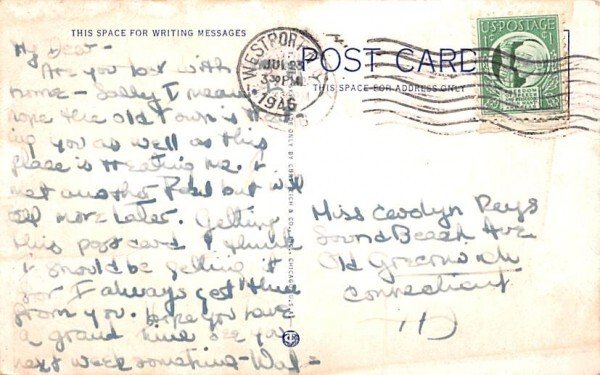 THIS SPACE FOR WRITING MESSAGES
My Dear -
Are you lost with
home - Sally I mean. I
hope the old town is
ing you as well as this
place is treating me. I
met another but will
tell more later. Getting
this post card I think
I should be getting it
for I always got them
from you. Hope you have
a grand time see you
next week sometime - Wal -
WESTPORT
JUL 23
3 30 PM
1946
POST CARD
THIS SPACE FOR ADDRESS ONLY
U.S. POSTAGE
1¢ 1¢
Miss Carolyn Reys
Sound Beach Ave
Old Greenwich
Connecticut
CHICAGO, U.S.A.